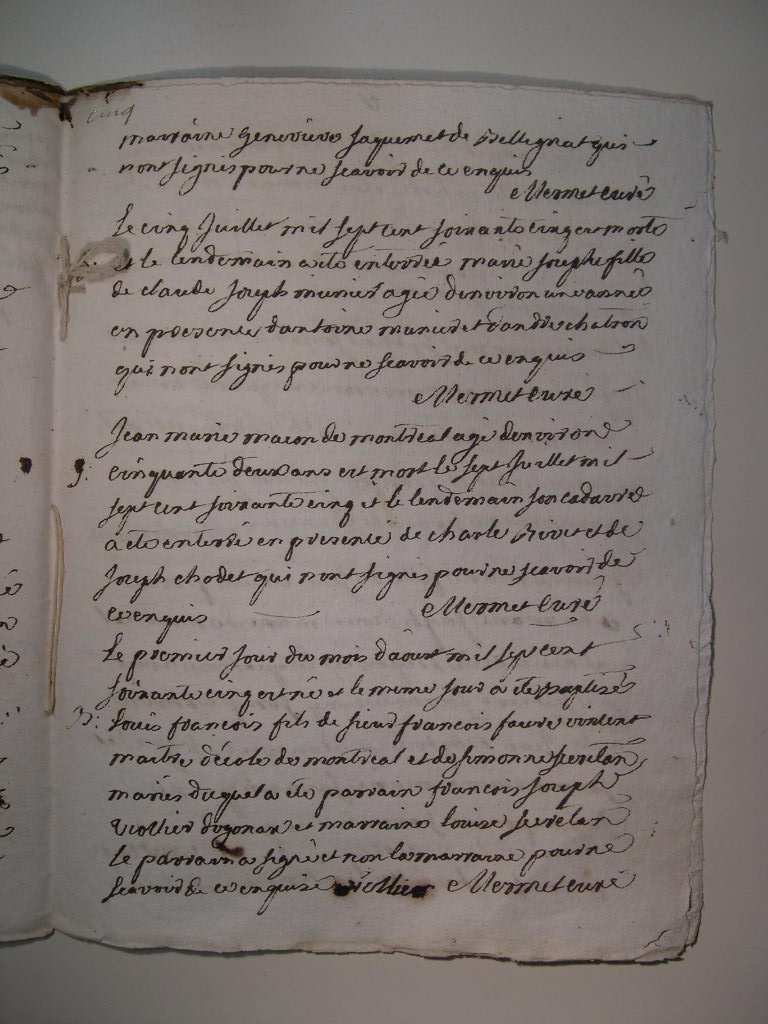 cinq
marraine Genevieve Jaquemet de Bellignat quis
nont signés pour ne scavoir de ce enquis
Mermet curé
Le cinq Juillet mil sept cent soixante cinq est morte
et le lendemain a eté enterreé marie Josephe fille
de claude Joseph munier agé denviron une anneé
en presence dantoine munier et dandré chatron
qui nont signés pour ne scavoir de ce enquis
Mermet curé
Jean marie macon de montreal agé denviron
cinquante deux ans est mort le sept Juillet mil
sept cent soixante cinq et le lendemain son cadavre
a eté enterré en presence de charle Rivet et de
Joseph chodet qui nont signés pour ne scavoir de
ce enquis Mermet curé
Le premier jour du mois daoust mil sept cent
soixante cinq est né et le meme jour a eté baptisé
B: Louis francois fils de sieur francois favre vincent
maitre décole de montreal et de simonne
mariés duquel a eté parrain francois Joseph
viollier doyonax et marraine louise
le parrain a signé et non la marraine pour ne
scavoir de ce enquise viollier Mermet curé